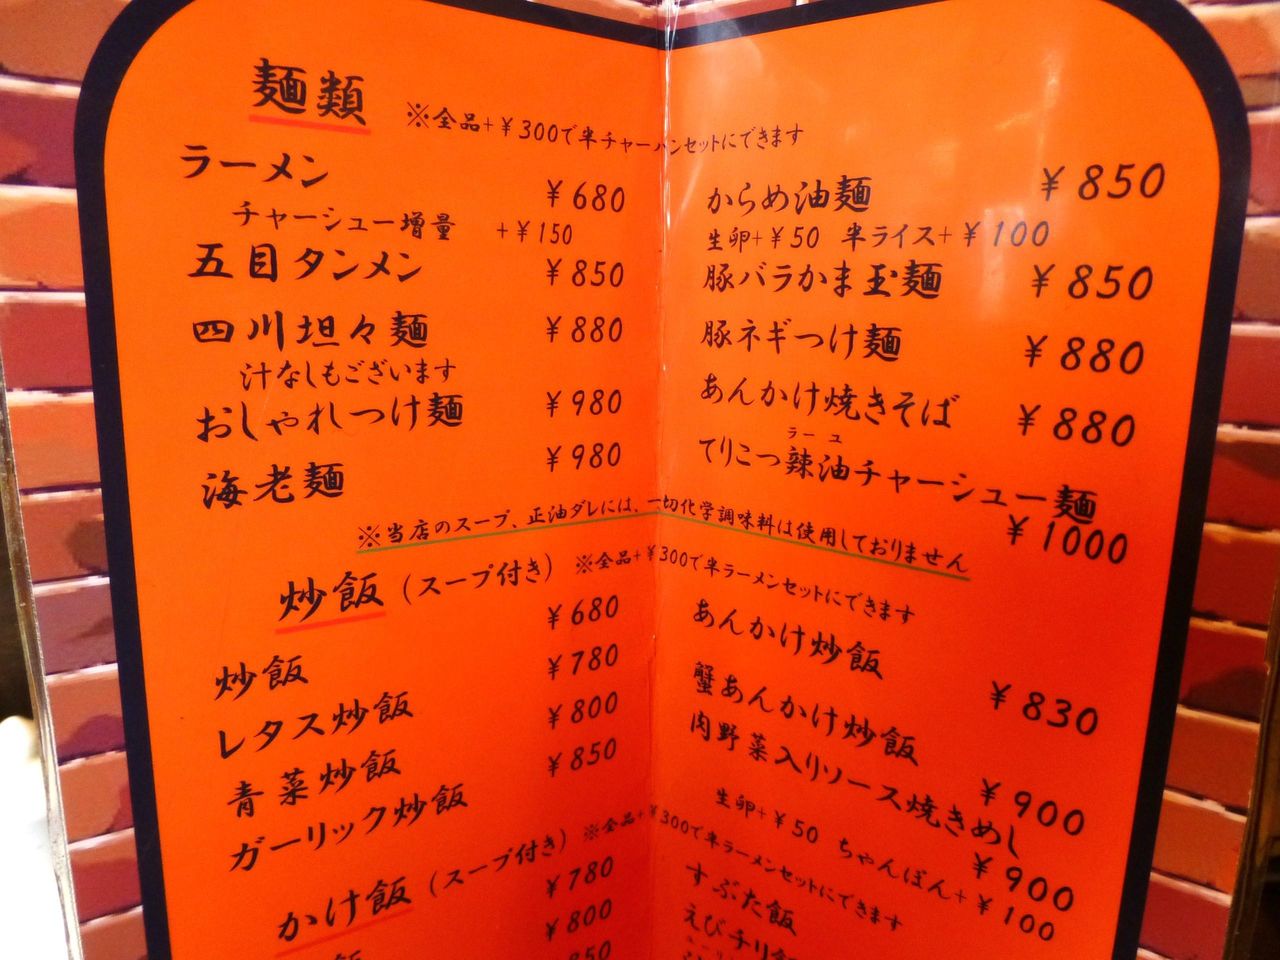 麺類 ※全品+￥300で半チャーハンセットにできます
ラーメン ￥680
チャーシュー増量 +￥150
五目タンメン ￥850
四川坦々麺 ￥880
汁なしもございます
おしゃれつけ麺 ￥980
海老麺 ￥980
からめ油麺 ￥850
生卵+￥50 半ライス+￥100
豚バラかま玉麺 ￥850
豚ネギつけ麺 ￥880
あんかけ焼きそば ￥880
ラーユ
てりこつ辣油チャーシュー麺
￥1000
※当店のスープ、正油ダレには、一切化学調味料は使用しておりません
炒飯（スープ付き）※全品+￥300で半ラーメンセットにできます
炒飯 ￥680
レタス炒飯 ￥780
青菜炒飯 ￥800
ガーリック炒飯 ￥850
あんかけ炒飯 ￥830
蟹あんかけ炒飯 ￥900
肉野菜入りソース焼きめし ￥900
生卵+￥50 ちゃんぽん+￥100
かけ飯（スープ付き）※全品+￥300で半ラーメンセットにできます
￥780
￥800
飯 850
すぶた飯
えびチリ飯